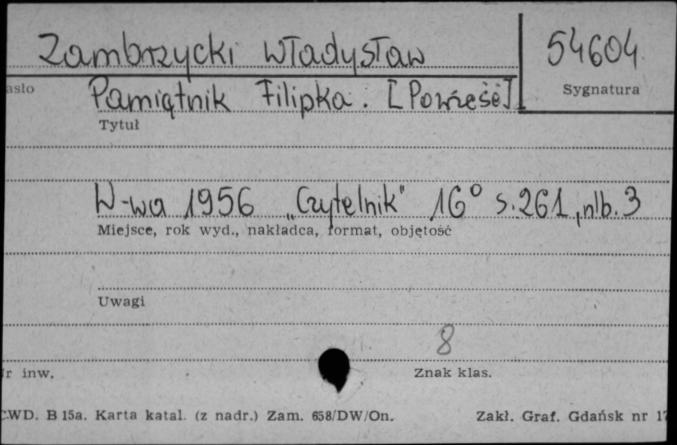 Zambrzycki Władysław 54604
asło Pamiętnik Filipka. [Powieść] Sygnatura
Tytuł
W-wa 1956 „Czytelnik" 16° s. 261, nlb. 3
Miejsce, rok wyd., nakładca, format, objętość
Uwagi
8
r inw. Znak klas.
CWD. B 15a. Karta katal. (z nadr.) Zam. 658/DW/On. Zakł. Graf. Gdańsk nr 17